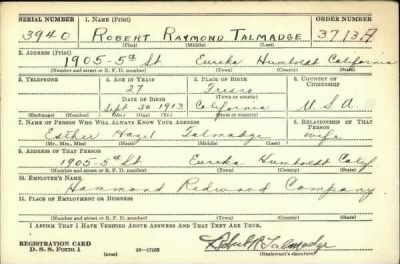 SERIAL NUMBER 1. NAME (Print) ORDER NUMBER
3940 ROBERT RAYMOND TALMADGE 3713A
(First) (Middle) (Last)
2. ADDRESS (Print)
1905-5th St Eureka Humboldt California
(Number and street or R. F. D. number) (Town) (County) (State)
3. TELEPHONE 4. AGE IN YEARS 5. PLACE OF BIRTH 6. COUNTRY OF CITIZENSHIP
27 Fresno
(Town or county)
DATE OF BIRTH
Sept 30 1913 California U S A
(Exchange) (Number) (Mo.) (Day) (Yr.) (State or country)
7. NAME OF PERSON WHO WILL ALWAYS KNOW YOUR ADDRESS 8. RELATIONSHIP OF THAT PERSON
Esther Hazel Talmadge wife
(Mr., Mrs., Miss) (First) (Middle) (Last)
9. ADDRESS OF THAT PERSON
1905-5th St Eureka Humboldt Calif
(Number and street or R. F. D. number) (Town) (County) (State)
10. EMPLOYER'S NAME
Hammond Redwood Company
11. PLACE OF EMPLOYMENT OR BUSINESS
(Number and street or R. F. D. number) (Town) (County) (State)
I AFFIRM THAT I HAVE VERIFIED ABOVE ANSWERS AND THAT THEY ARE TRUE.
REGISTRATION CARD
D. S. S. Form 1 (over) Robert R Talmadge
(Registrant's signature)